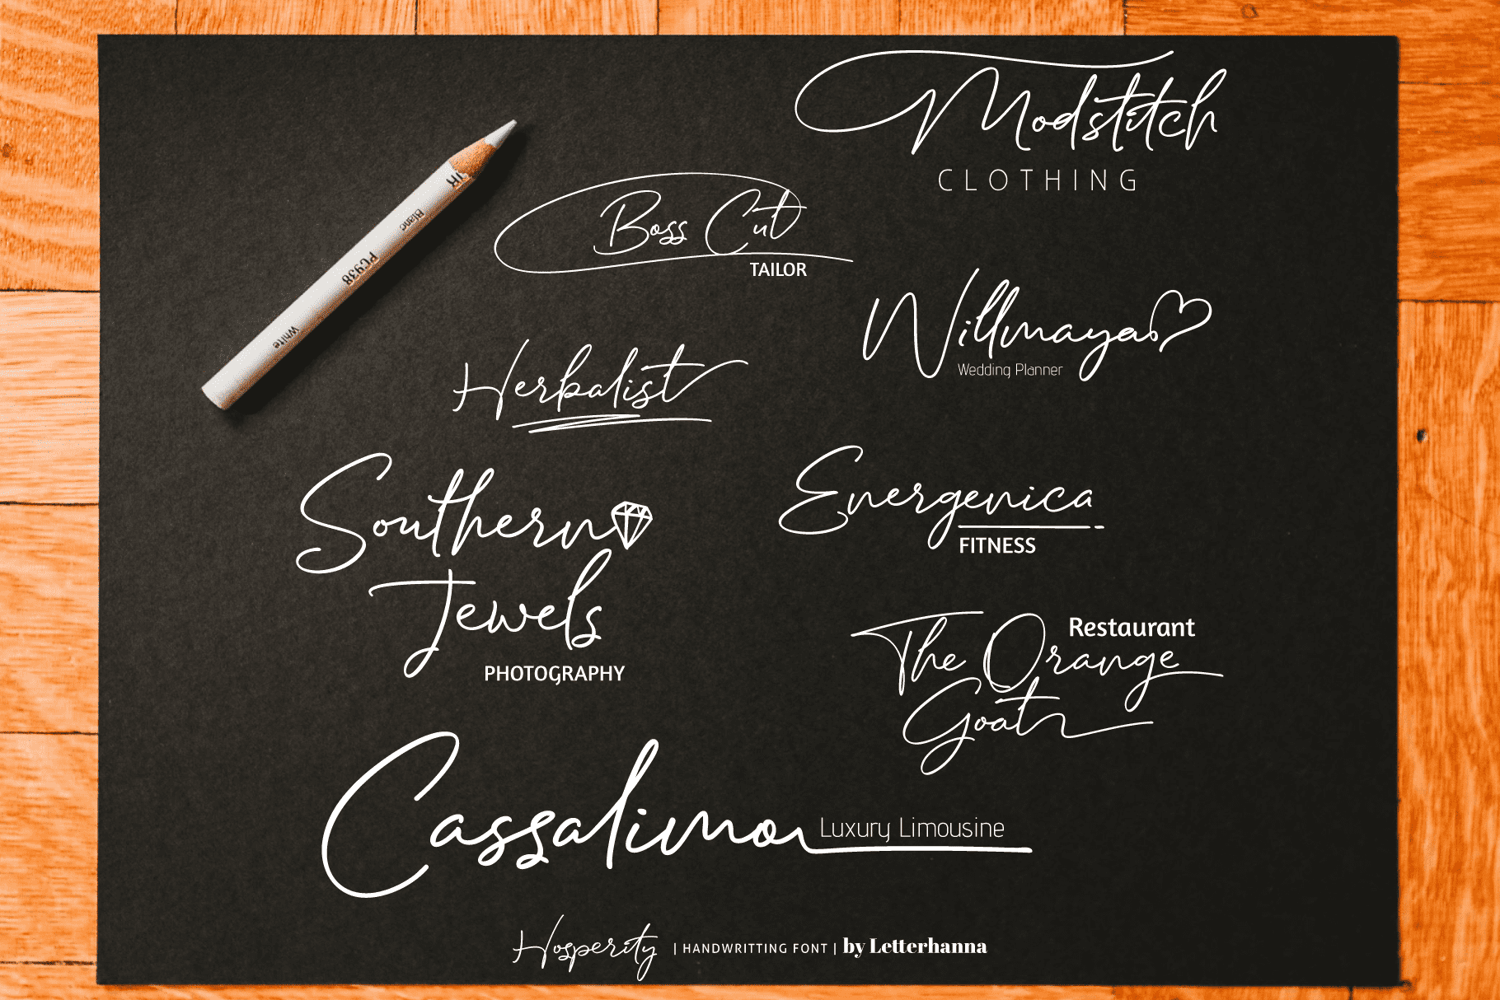 Modstitch
CLOTHING
Boss Cut
TAILOR
Blanc
PC938
White
Willmaya
Wedding Planner
Herbalist
Southern
Jewels
PHOTOGRAPHY
Energenica
FITNESS
Restaurant
The Orange
Goat
Cassalimo
Luxury Limousine
Hosperity | HANDWRITTING FONT | by Letterhanna